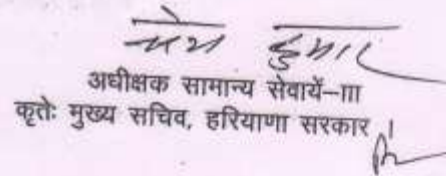 कुमार
अधीक्षक सामान्य सेवायें–III
कृतेः मुख्य सचिव, हरियाणा सरकार